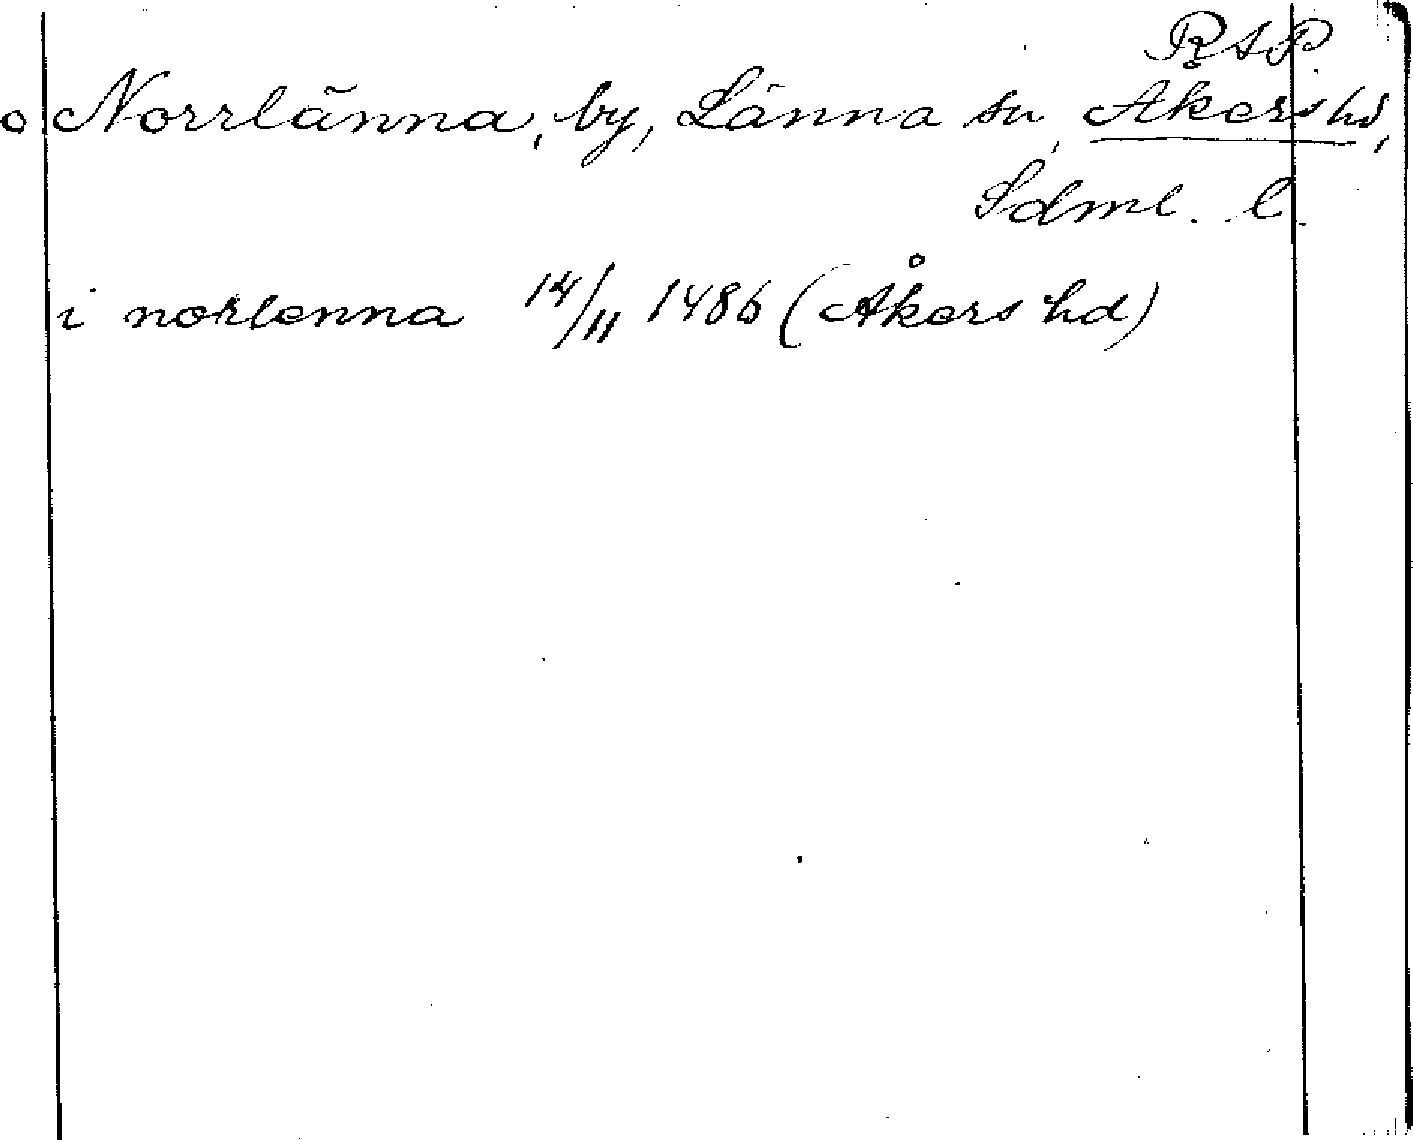 RAP
o Norrlänna, by, Länna sn, Åkers hd,
Sdml. l.
i norlenna 14/11 1486 (Åkers hd)